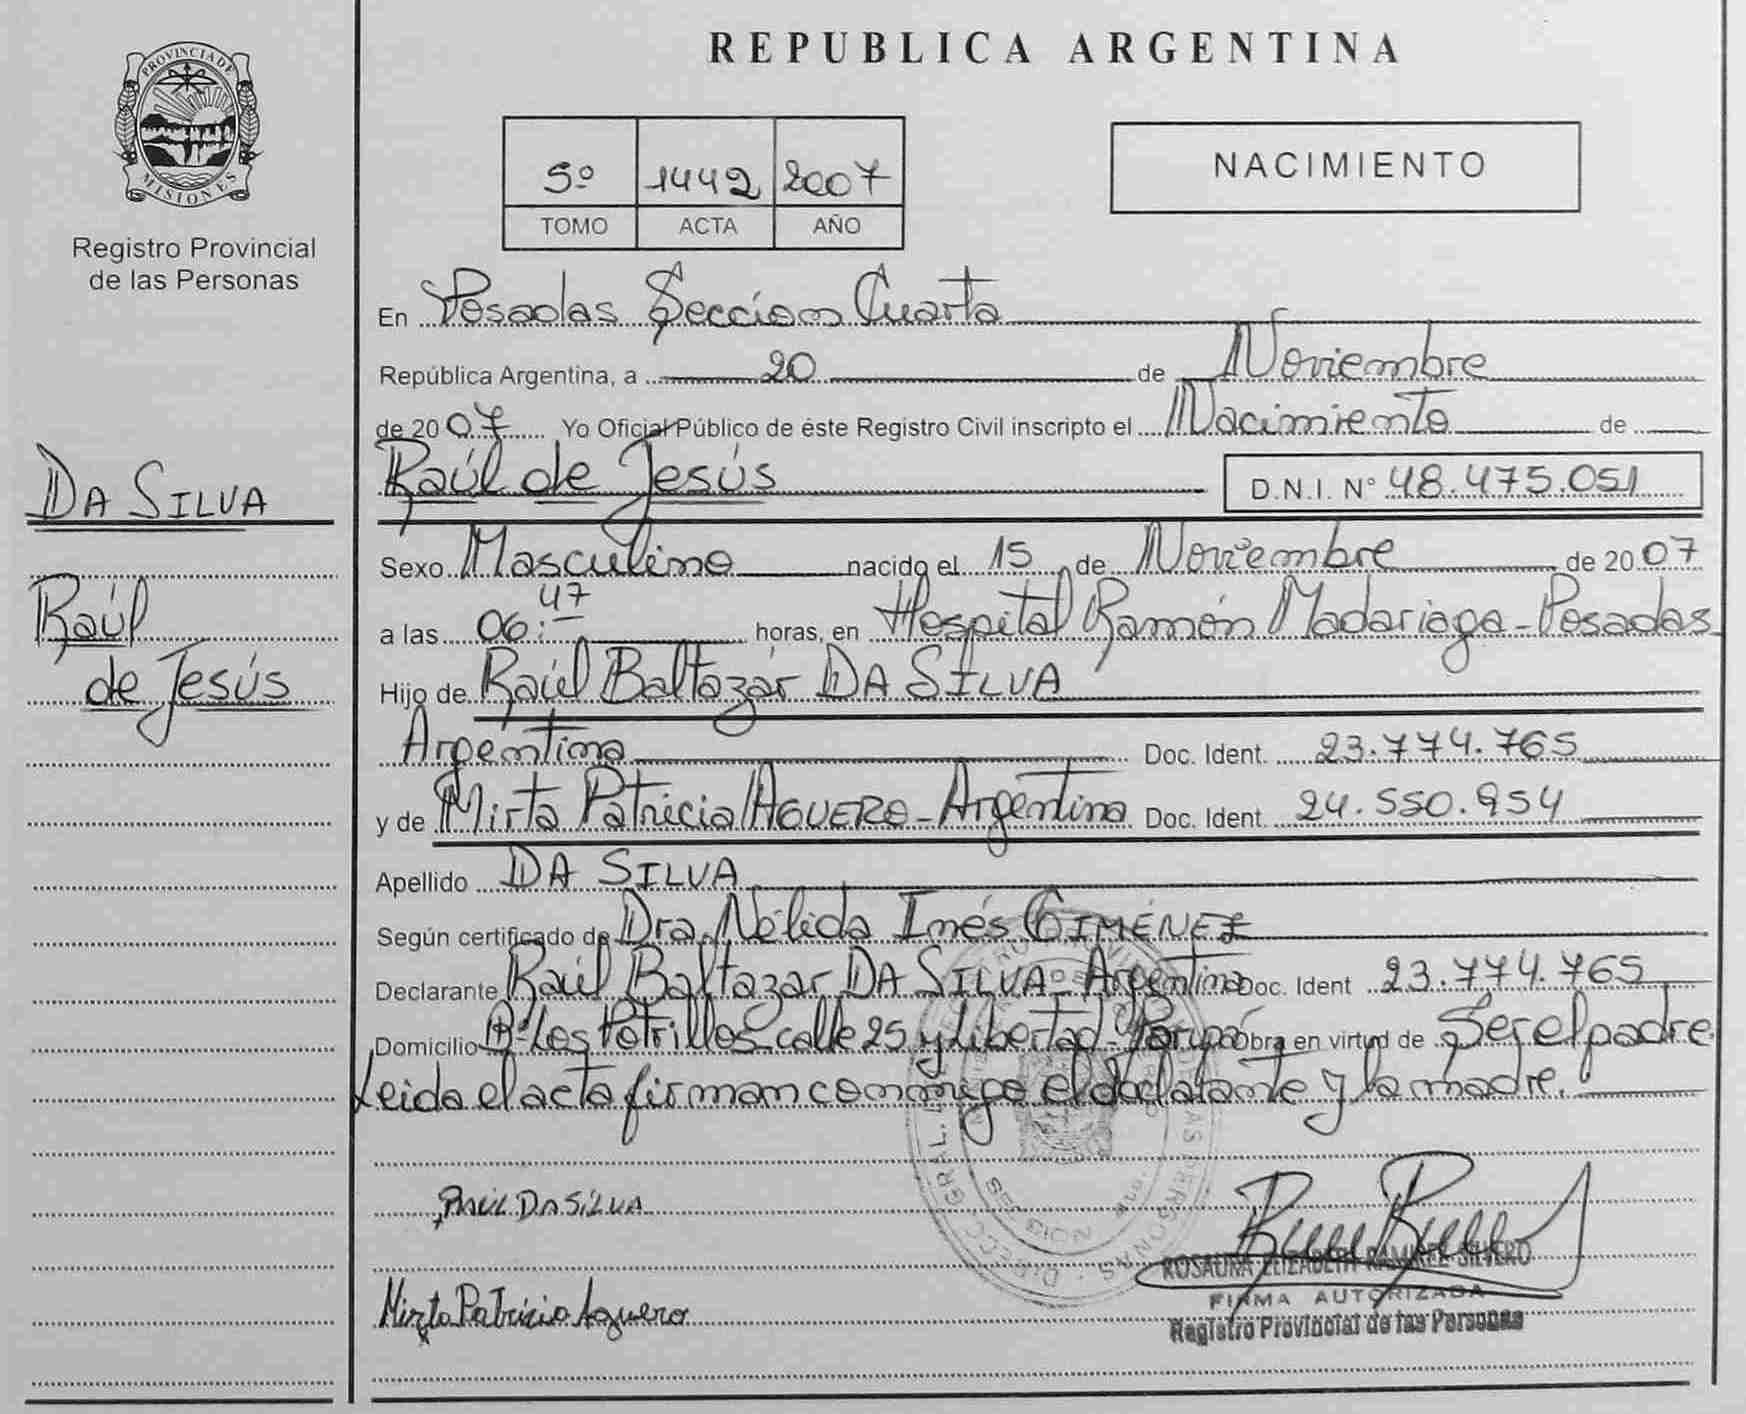 PROVINCIA DE
MISIONES
Registro Provincial
de las Personas
DA SILVA
Raúl
de Jesús
REPUBLICA ARGENTINA
5º 1442 2007
TOMO ACTA AÑO
NACIMIENTO
En Posadas Sección Cuarta
República Argentina, a 20 de Noviembre
de 2007 Yo Oficial Público de éste Registro Civil inscripto el Nacimiento de
Raúl de Jesús D.N.I. N° 48.475.051
Sexo Masculino nacido el 15 de Noviembre de 2007
a las 06:47 horas, en Hospital Ramón Madariaga - Posadas
Hijo de Raúl Baltazar DA SILVA
Argentina Doc. Ident. 23.774.765
y de Mirta Patricia AGUERO - Argentina Doc. Ident. 24.550.954
Apellido DA SILVA
Según certificado de Dra. Nélida Inés GIMÉNEZ
Declarante Raúl Baltazar DA SILVA - Argentina Doc. Ident 23.774.765
Domicilio Bº Los Potrillos calle 25 y Libertad - Garupá obra en virtud de Ser el padre
Leida el acta firman conmigo el declarante y la madre.
RAUL DA SILVA
Mirta Patricia Aguero
ROSAURA ELIZABETH RAMIREZ SILVERO
FIRMA AUTORIZADA
Registro Provincial de las Personas